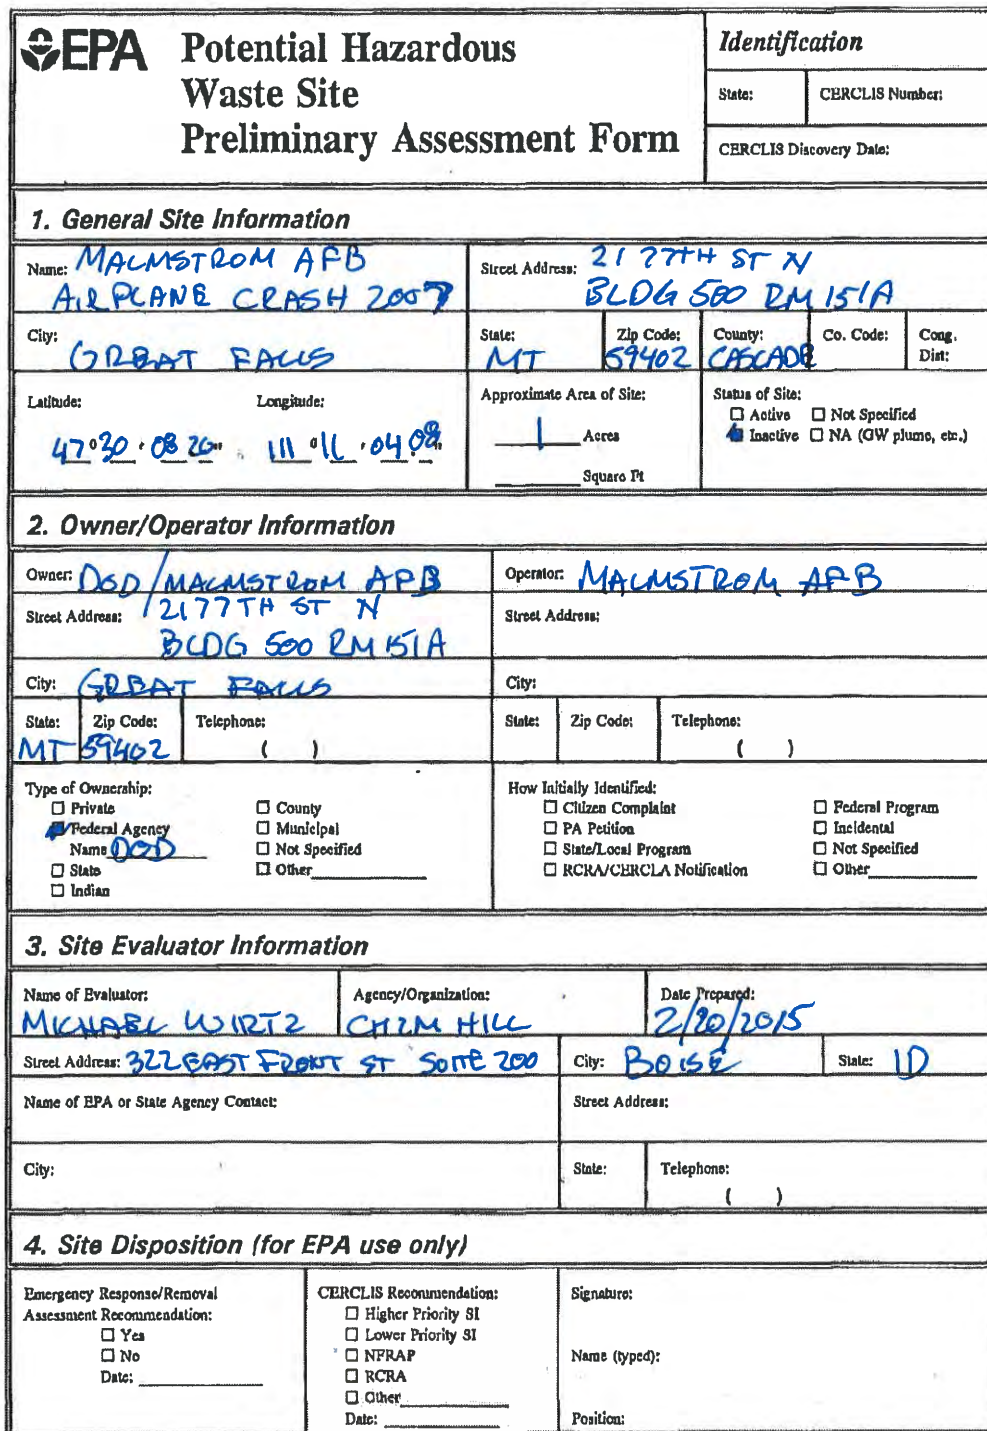 EPA Potential Hazardous
Waste Site
Preliminary Assessment Form
Identification
State: CERCLIS Number:
CERCLIS Discovery Date:
1. General Site Information
Name: MALMSTROM AFB
AIRPLANE CRASH 2007
Street Address: 21 77TH ST N
BLDG 500 RM 151A
City: GREAT FALLS
State: MT
Zip Code: 59402
County: CASCADE
Co. Code:
Cong. Dist:
Latitude: Longitude:
47° 30 ' 08 20" 111 ° 11 ' 04 08"
Approximate Area of Site:
1 Acres
Square Ft
Status of Site:
☐ Active ☐ Not Specified
☒ Inactive ☐ NA (GW plume, etc.)
2. Owner/Operator Information
Owner: DOD/MALMSTROM AFB
Operator: MALMSTROM AFB
Street Address: 21 77TH ST N
BLDG 500 RM 151A
Street Address:
City: GREAT FALLS
City:
State: MT
Zip Code: 59402
Telephone: ( )
State: Zip Code: Telephone: ( )
Type of Ownership:
☐ Private ☐ County
☒ Federal Agency ☐ Municipal
Name DOD ☐ Not Specified
☐ State ☐ Other
☐ Indian
How Initially Identified:
☐ Citizen Complaint ☐ Federal Program
☐ PA Petition ☐ Incidental
☐ State/Local Program ☐ Not Specified
☐ RCRA/CERCLA Notification ☐ Other
3. Site Evaluator Information
Name of Evaluator: MICHAEL WIRTZ
Agency/Organization: CH2M HILL
Date Prepared: 2/20/2015
Street Address: 322 EAST FRONT ST SUITE 200
City: BOISE
State: ID
Name of EPA or State Agency Contact:
Street Address:
City:
State: Telephone: ( )
4. Site Disposition (for EPA use only)
Emergency Response/Removal
Assessment Recommendation:
☐ Yes
☐ No
Date:
CERCLIS Recommendation:
☐ Higher Priority SI
☐ Lower Priority SI
☐ NFRAP
☐ RCRA
☐ Other
Date:
Signature:
Name (typed):
Position: